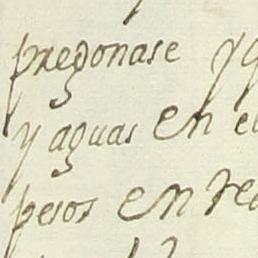 pregonase y
y aguas en el
pesos en re